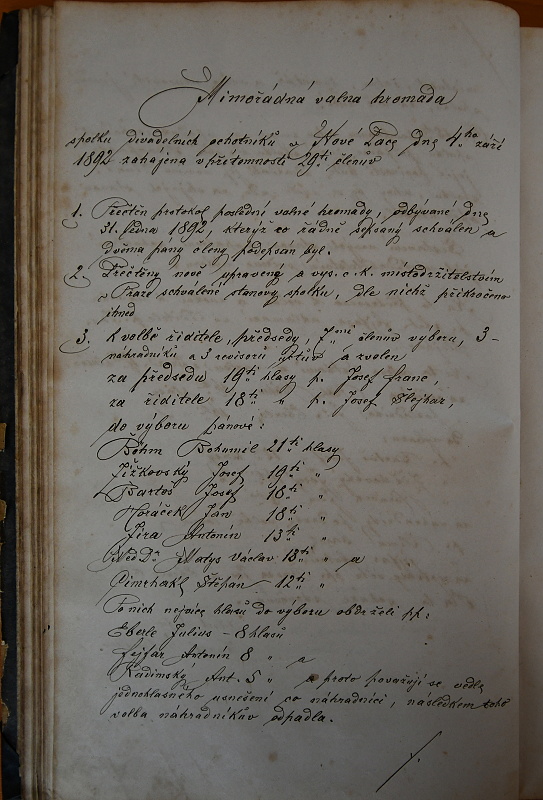 Mimořádná valná hromada
spolku divadelních ochotníků v Nové Pace dne 4ho září
1892 zahájena v přítomnosti 29ti členův
1. Přečten protokol poslední valné hromady, odbývané dne
31. ledna 1892, kterýž co řádně sepsaný schválen a
dvěma pány členy podepsán byl.
2. Přečteny nově upravené a vys. c. k. místodržitelstvím
v Praze schválené stanovy spolku, dle nichž přikročeno
ihned
3. K volbě ředitele, předsedy, 7mi členův výboru, 3-
náhradníků a 3 revisorů účtův a zvolen
za předsedu 19ti hlasy p. Josef
za ředitele 18ti " p. Josef Šlejhar,
do výboru pánové:
Böhm Bohumil 21ti hlasy
Jižkovský Josef 19ti "
Bartoš Josef 18ti "
Horáček Jan 18ti "
Jira Antonín 13ti "
Med. Dr. Matys Václav 18ti " a
Cimrhakl Štěpán 12ti "
Po nich nejvíce hlasů do výboru obdrželi pp:
Eberle Julius - 8 hlasů
Fejfar Antonín 8 " a
Kadimský Ant. 5 " a proto považují se vedle
jednohlasného usnešení co náhradníci, následkem toho
volba náhradníkův odpadla.